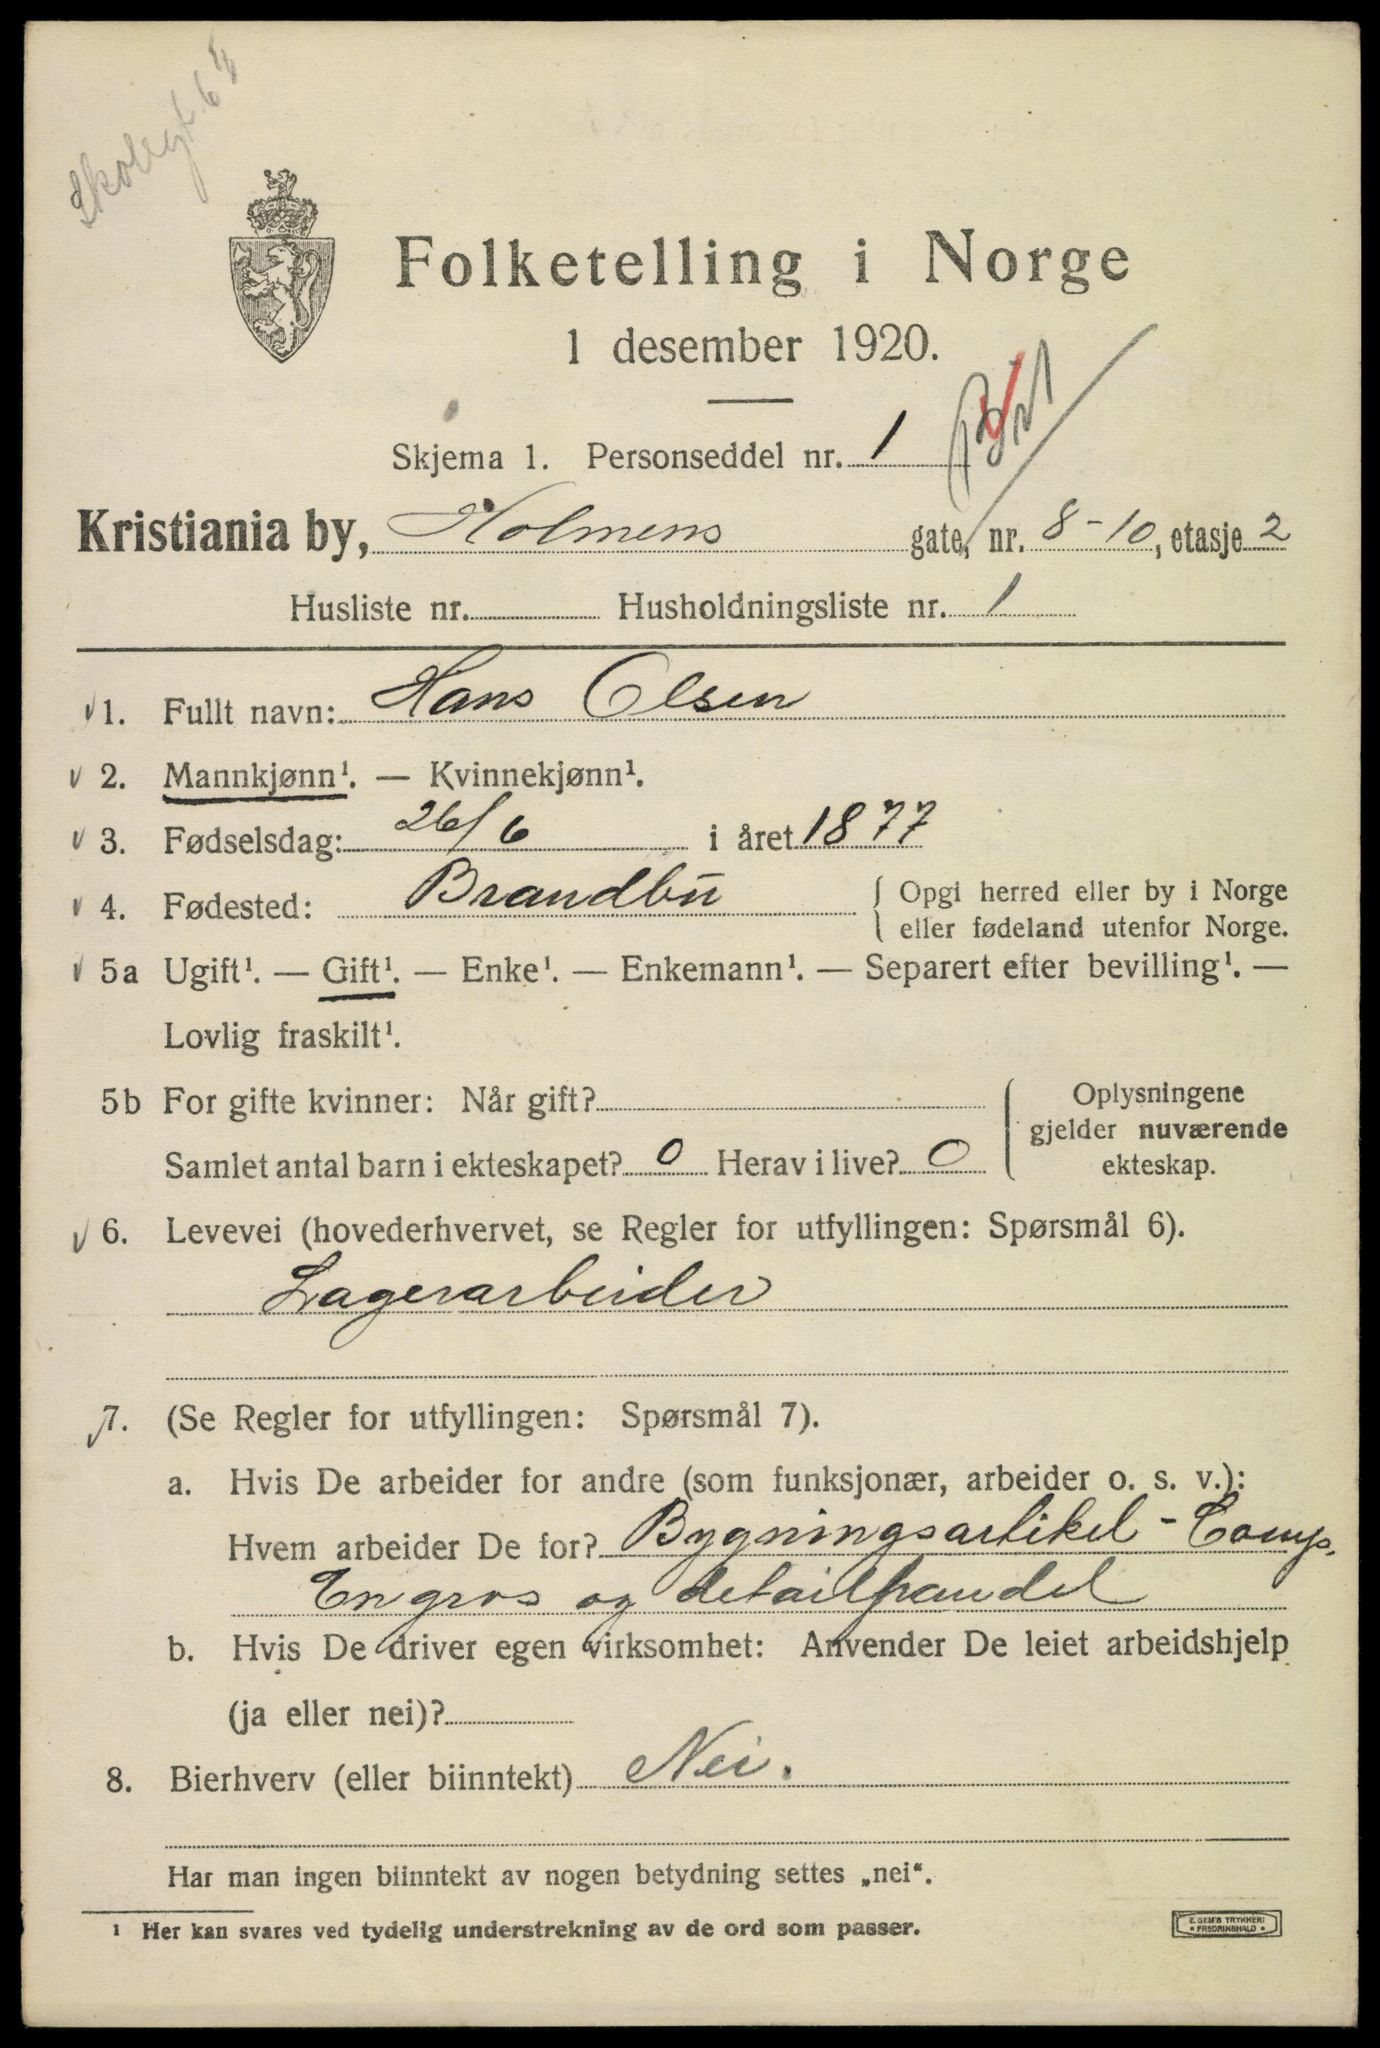 Folketelling i Norge
1 desember 1920.
Skjema 1. Personseddel nr. 1
Kristiania by, Holmens gate, nr. 8-10, etasje 2
Husliste nr. Husholdningsliste nr. 1
1. Fullt navn: Hans Olsen
2. Mannkjønn¹. — Kvinnekjønn¹.
3. Fødselsdag: 26/6 i året 1877
4. Fødested: Brandbu { Opgi herred eller by i Norge
eller fødeland utenfor Norge.
5a Ugift¹. — Gift¹. — Enke¹. — Enkemann¹. — Separert efter bevilling¹. —
Lovlig fraskilt¹.
5b For gifte kvinner: Når gift?
Samlet antal barn i ekteskapet? 0 Herav i live? 0
Oplysningene
gjelder nuværende
ekteskap.
6. Levevei (hovederhvervet, se Regler for utfyllingen: Spørsmål 6).
Lagerarbeider
7. (Se Regler for utfyllingen: Spørsmål 7).
a. Hvis De arbeider for andre (som funksjonær, arbeider o. s. v.):
Hvem arbeider De for? Bygningsartikel - Comp.
Engros og detailhandel
b. Hvis De driver egen virksomhet: Anvender De leiet arbeidshjelp
(ja eller nei)?
8. Bierhverv (eller biinntekt) Nei.
Har man ingen biinntekt av nogen betydning settes „nei“.
¹ Her kan svares ved tydelig understrekning av de ord som passer.
E. SEM'S TRYKKERI
* FREDRIKSHALD *